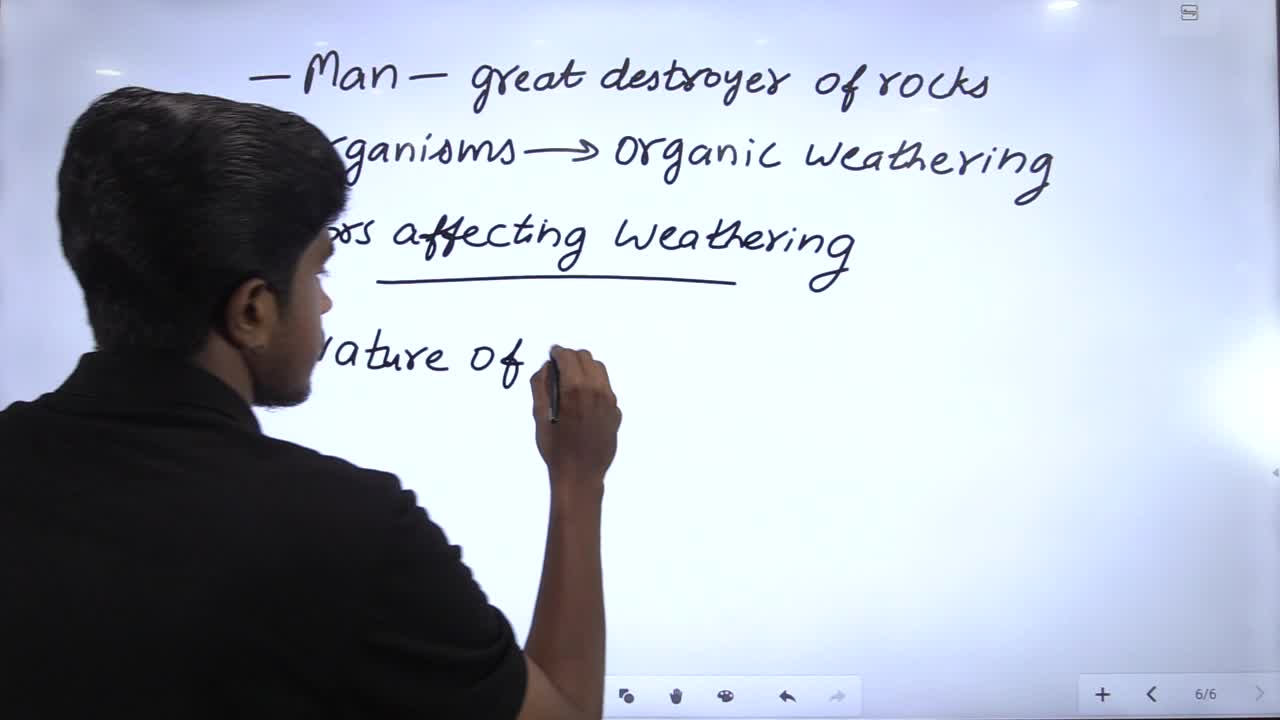 — Man — great destroyer of rocks
organisms → organic weathering
affecting weathering
Nature of
6/6